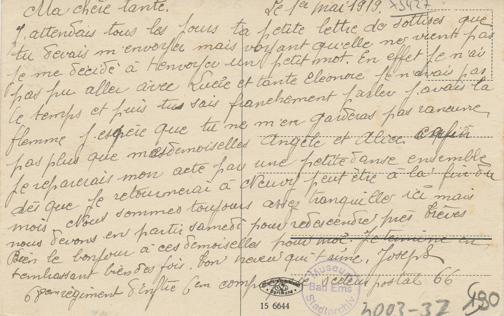 Ma chère tante. Le 1er Mai 1919
J'attendais tous les jours ta petite lettre de sottises que
tu devais m'envoyer mais voyant qu'elle ne vient pas
je me décide à t'envoyer un petit mot. En effet je n'ai
pas pu aller avec Lucie et tante eleonore je n'avais pas
le temps et puis tu sais franchement parler j'avais la
flemme j'espère que tu ne m'en garderas pas rancune
pas plus que mesdemoiselles Angèle et Alice enfin
je reparerais mon acte pas une petite danse ensemble
dès que je retournerai à peut être à la fin du
mois. Nous sommes toujours assez tranquilles ici mais
nous devons en partir samedi pour redescendre près Trèves
Bien le bonjour à ces demoiselles pour moi. Je termine en
t'embrassant bien des fois. Ton neveu qui t'aime. Joseph
6e regiment d'Inftie en compe secteur postal 66
15 6644
Museum
Bad Ems
Stadtarchiv
4003-37
190